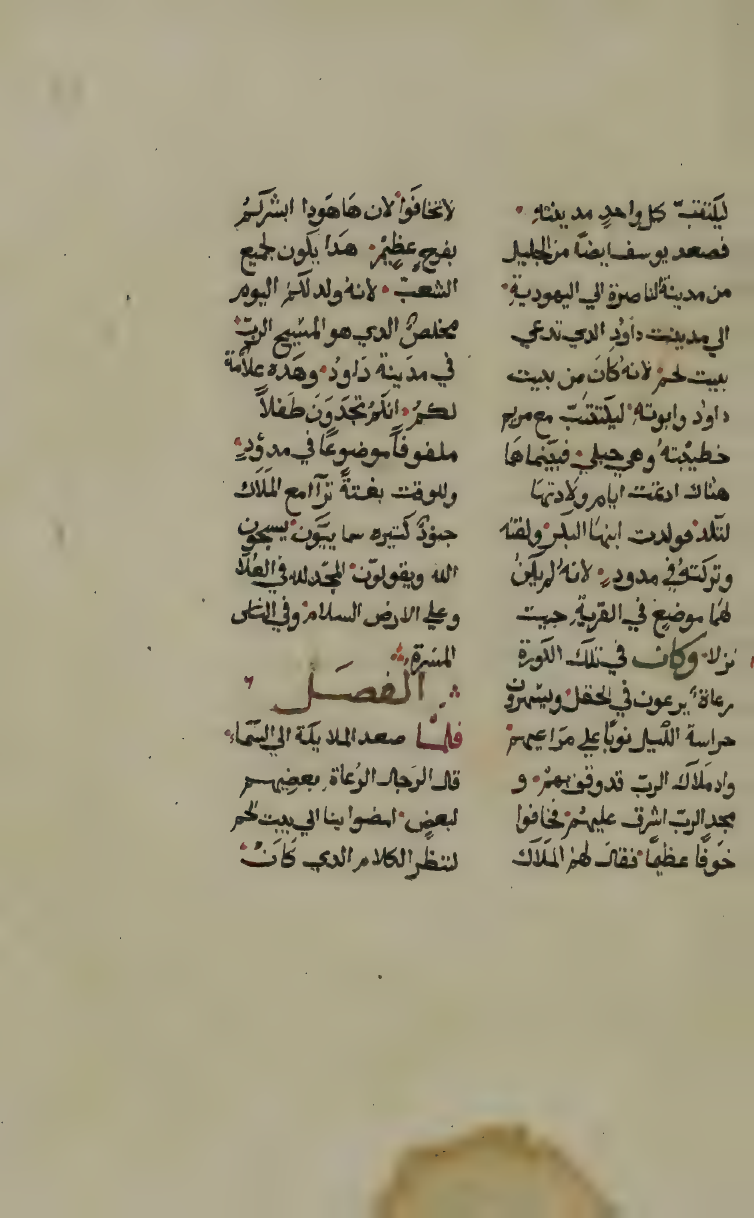 ليكتتب كل واحد مدينته
فصعد يوسف ايضا من الجليل
من مدينة الناصرة الي اليهودية
الي مدينت داود الدي تدعي
بيت لحم لانه كان من بيت
داود وابوته ليكتتب مع مريم
خطيبته وهي حبلي فبينما ها
هناك ادتمت ايام ولادتها
لتلد فولدت ابنها البكر ولفته
وتركته في مدود لانه لم يكن
لهما موضع في القرية حيت
نزلا وكان في تلك الكورة
رعاة يرعون في الحقل ويسهرون
حراسة الليل نوبا علي مراعيهم
وادملاك الرب قد وقف بهم و
مجد الرب اشرق عليهم فخافوا
خوفا عظيما فقال لهم الملاك
لا تخافوا لان ها هودا ابشركم
بفرح عظيم هدا يكون لجميع
الشعب لانه ولد لكم اليوم
مخلص الدي هو المسيح الرب
في مدينة داود وهده علامة
لكم انكم تجدون طفلا
ملفوفا موضوعا في مدود
وللوقت بغتة تراا مع الملاك
جنود كتيره سماييون يسبحون
الله ويقولون المجد لله في العلا
وعلي الارض السلام وفي الناس
المسرة
الفصل ٦
فلما صعد الملايكة الي السماء
قال الرجال الرعاة بعضهم
لبعض امضوا بنا الي بيت لحم
لننظر الكلام الدي كان